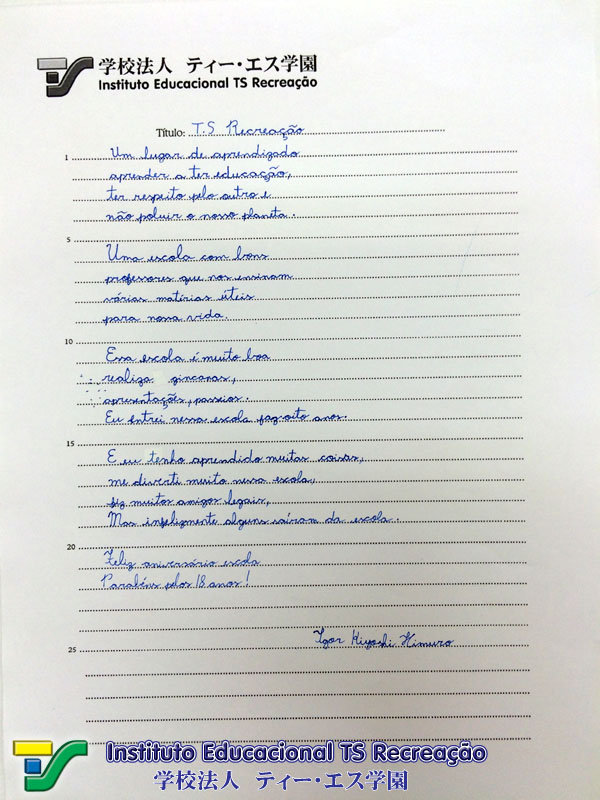 学校法人 ティー・エス学園
Instituto Educacional TS Recreação
Título: T.S Recreação
1 Um lugar de aprendizado
aprender a ter educação,
ter respeito pelo outro e
não poluir o nosso planeta.
5
Uma escola com bons
professores que nos ensinam
várias matérias úteis
para nossa vida.
10
Essa escola é muito boa
realiza gincanas,
apresentações, passeios.
Eu entrei nessa escola faz oito anos.
15
E eu tenho aprendido muitas coisas,
me diverti muito nessa escola,
fiz muitos amigos legais,
Mas infelizmente alguns saíram da escola.
20
Feliz aniversário escola
Parabéns pelos 18 anos!
Igor Kiyoshi Himuro
25
Instituto Educacional TS Recreação
学校法人 ティー・エス学園